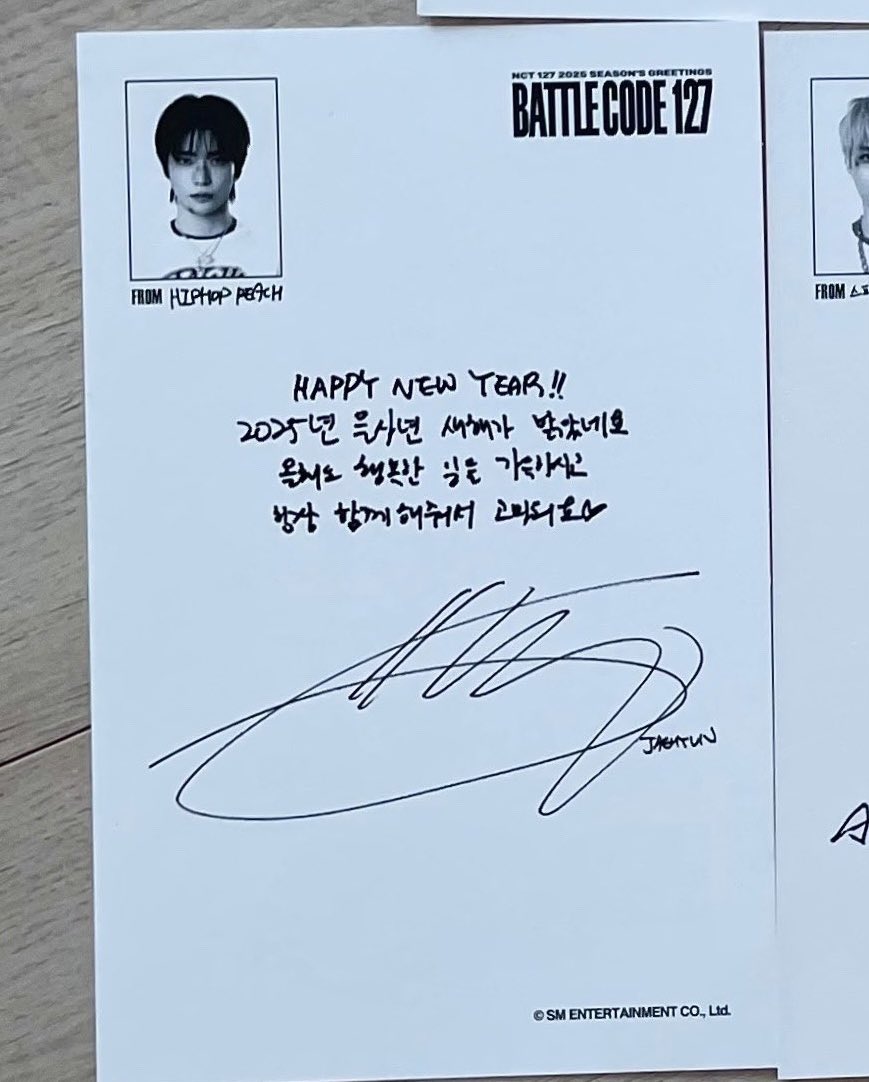 NCT 127 2025 SEASON'S GREETINGS
BATTLE CODE 127
FROM HIPHOP PEACH
FROM 스피
HAPPY NEW YEAR!!
2025년 을사년 새해가 밝았네요
올해도 행복한 일들 가득하시고
항상 함께해줘서 고마워요♡
JAEHYUN
A
© SM ENTERTAINMENT CO., Ltd.